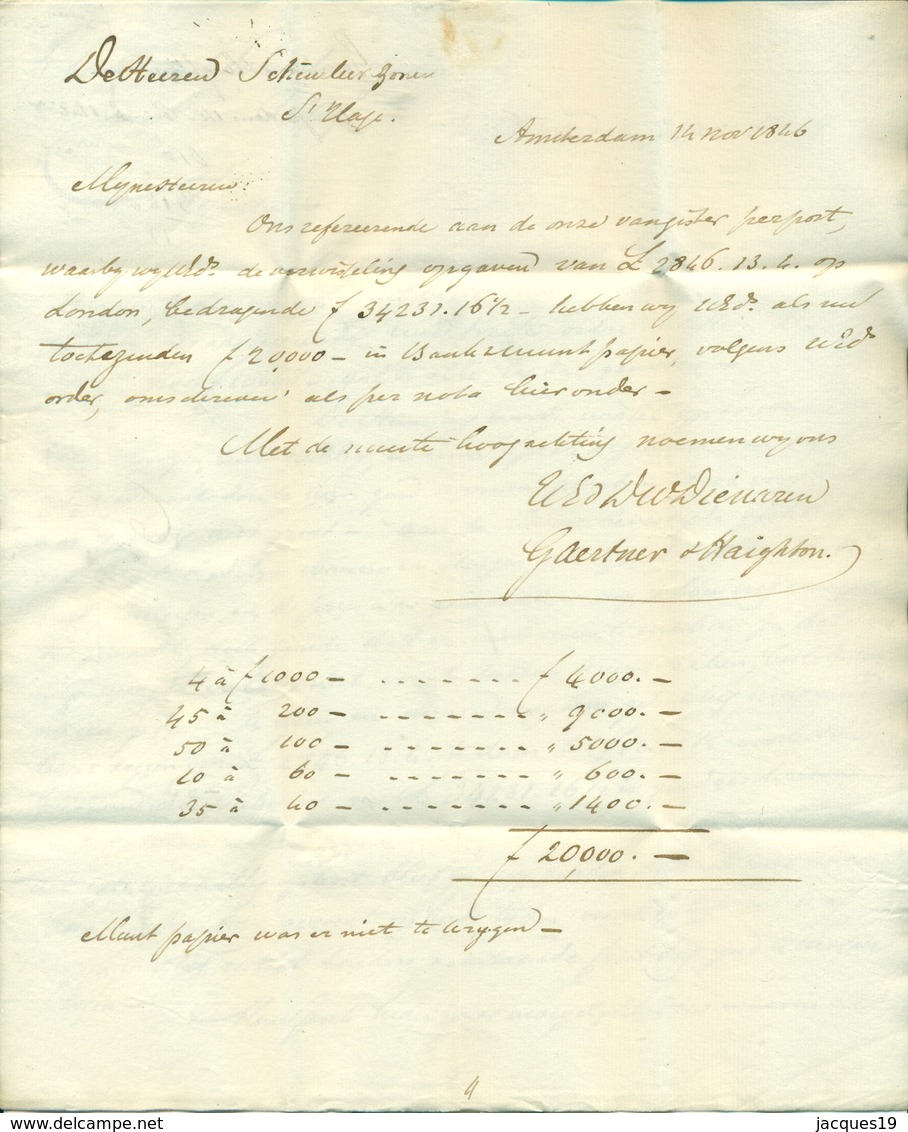 De Heeren Scheurleer Zonen
S' Hage.
Amsterdam 14 Nov 1846
Myne Heeren!
Ons refereerende aan de onze van gister per post,
waarby wy UEds. de verwisseling opgaven van £ 2846.13.4. op
London, bedragende f 34231.16½ – hebben wy UEds. als nu
toetezenden f 20,000 – in Bank & munt papier, volgens UEds
order, omschreven als per nota hier onder –
Met de meeste hoogachting noemen wy ons
UEd DW Dienaren
Gaertner & Haighton.
4 à f 1000 – . . . . . . . f 4000. –
45 à 200 – . . . . . . . „ 9000. –
50 à 100 – . . . . . . . „ 5000. –
10 à 60 – . . . . . . . „ 600. –
35 à 40 – . . . . . . . „ 1400. –
f 20,000. –
Munt papier was er niet te krygen –
jacques19